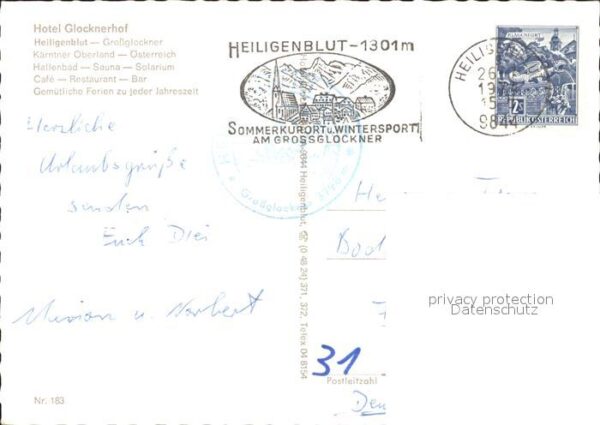 Hotel Glocknerhof
Heiligenblut — Großglockner
Kärntner Oberland — Österreich
Hallenbad — Sauna — Solarium
Café — Restaurant — Bar
Gemütliche Ferien zu jeder Jahreszeit
HEILIGENBLUT - 1301 m
SOMMERKURORT u. WINTERSPORT
AM GROSSGLOCKNER
KLAGENFURT
2
REPUBLIK ÖSTERREICH
9844
Herzliche
Urlaubsgrüße
senden
Euch Drei
u. Norbert
Großglockner 3798 m
9844 Heiligenblut, ☏ (0 48 24) 371, 372, Telex 04 8154
privacy protection
Datenschutz
31
Postleitzahl
Nr. 183